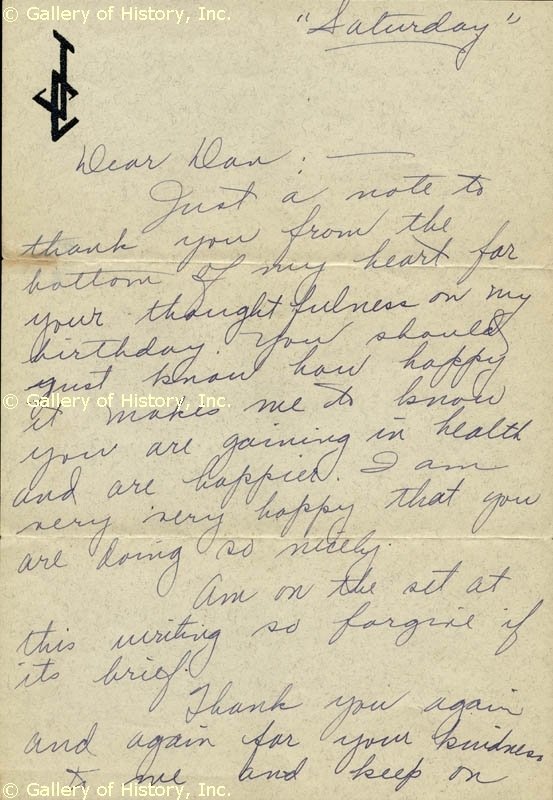 © Gallery of History, Inc.
"Saturday"
Dear Dan : —
Just a note to
thank you from the
bottom of my heart for
your thoughtfulness on my
birthday. You should
just know how happy
© Gallery of History, Inc.
it makes me to know
you are gaining in health
and are happier. I am
very very happy that you
are doing so nicely.
Am on the set at
this writing so forgive if
its brief.
Thank you again
and again for your kindness
to me and keep on
© Gallery of History, Inc.